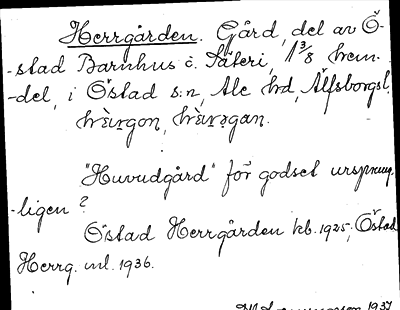 Herrgården. Gård, del av Ö-
-stad Barnhus o. Säteri, 1 3/8 hem.
-del, i Östad s:n, Ale hd, Älfsborgs l.
"Huvudgård" för godset ursprung-
-ligen?
Östad Herrgården kb. 1925; Östad
Herrg. ml. 1936.
1937